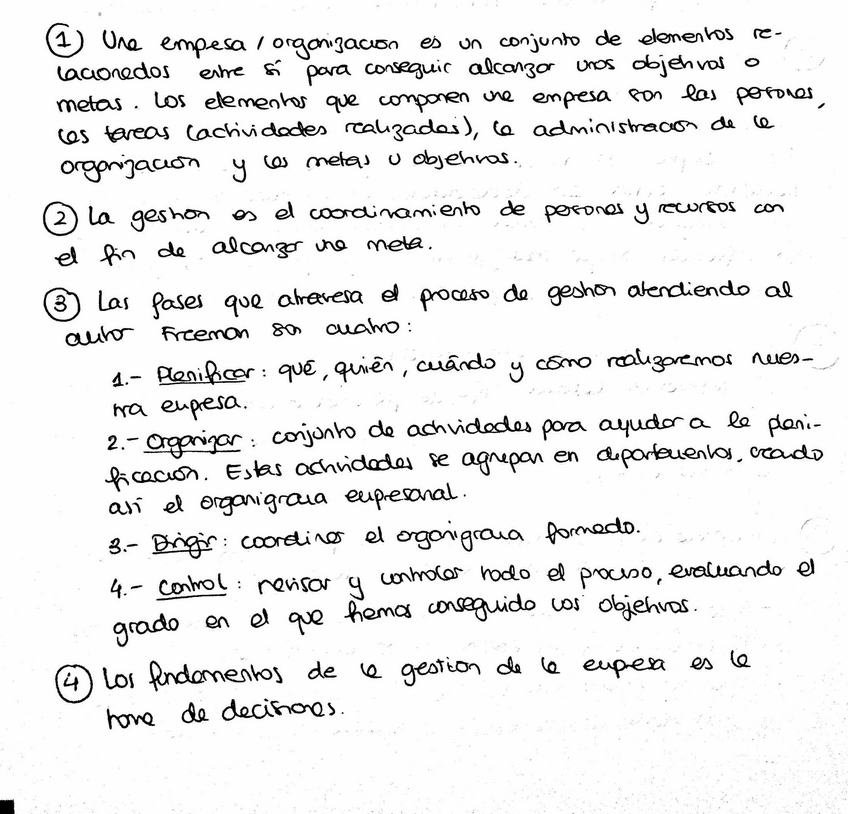 ① Una empesa / organización es un conjunto de elementos re-
lacionados entre sí para conseguir alcanzar unos objetivos o
metas. Los elementos que componen una empesa son las personas,
las tareas (actividades realizadas), la administración de la
organización y las metas u objetivos.
② La gestion es el coordinamiento de personas y recursos con
el fin de alcanzar una meta.
③ Las fases que atraviesa el proceso de gestion atendiendo al
autor Freeman son cuatro:
1.- Planificar: qué, quién, cuándo y cómo realizaremos nues-
tra empresa.
2.- Organizar: conjunto de actividades para ayudar a la plani-
ficación. Estas actividades se agrupan en departamentos, creando
así el organigrama empresarial.
3.- Dirigir: coordinar el organigrama formado.
4.- Control: revisar y controlar todo el proceso, evaluando el
grado en el que hemos conseguido los objetivos.
④ Los fundamentos de la gestion de la empresa es la
toma de decisiones.